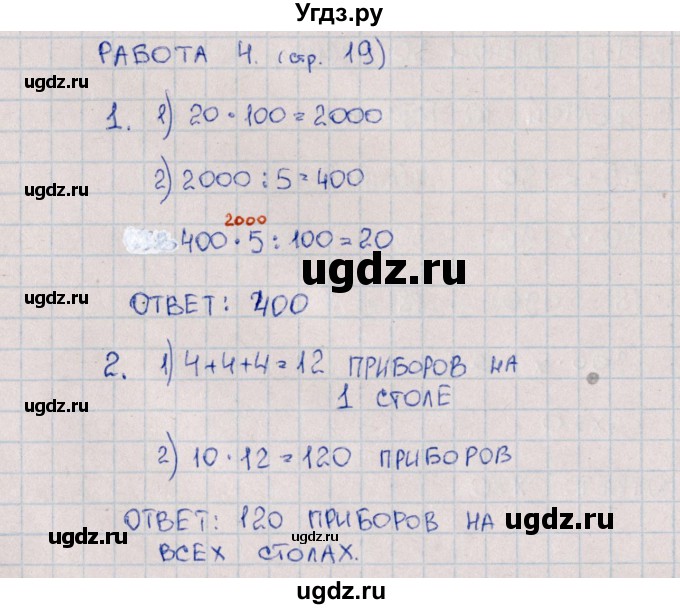 Угдз.ру
РАБОТА 4. (стр. 19)
1. 1) 20 · 100 = 2000
2) 2000 : 5 = 400
2000
400 · 5 : 100 = 20
ОТВЕТ: 400
2. 1) 4+4+4=12 ПРИБОРОВ НА
1 СТОЛЕ
2) 10 · 12 = 120 ПРИБОРОВ
ОТВЕТ: 120 ПРИБОРОВ НА
ВСЕХ СТОЛАХ.
ugdz.ru
ugdz.ru
ugdz.ru
ugdz.ru
ugdz.ru
ugdz.ru
ugdz.ru
ugdz.ru
ugdz.ru
ugdz.ru
ugdz.ru
ugdz.ru
ugdz.ru